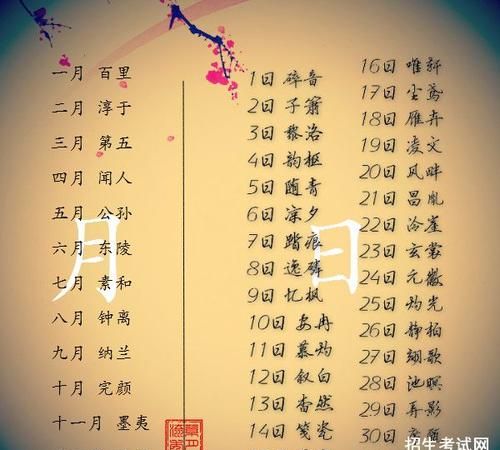 一月 百里
二月 淳于
三月 第五
四月 闻人
五月 公孙
六月 东陵
七月 素和
八月 钟离
九月 纳兰
十月 完颜
十一月 墨夷
月
1日 碎音
2日 子箫
3日 黎洛
4日 韵枢
5日 随青
6日 凉夕
7日 踏痕
8日 逸磷
9日 忆枫
10日 安冉
11日 慕灼
12日 叙白
13日 杳然
14日 笺瓷
日
16日 唯轩
17日 尘鸢
18日 雁卉
19日 凌文
20日 风畔
21日 昌胤
22日 泠崖
23日 玄裳
24日 元徽
25日 灼光
26日 静柏
27日 翊歌
28日 池暝
29日 弄影
30日
招生考试网